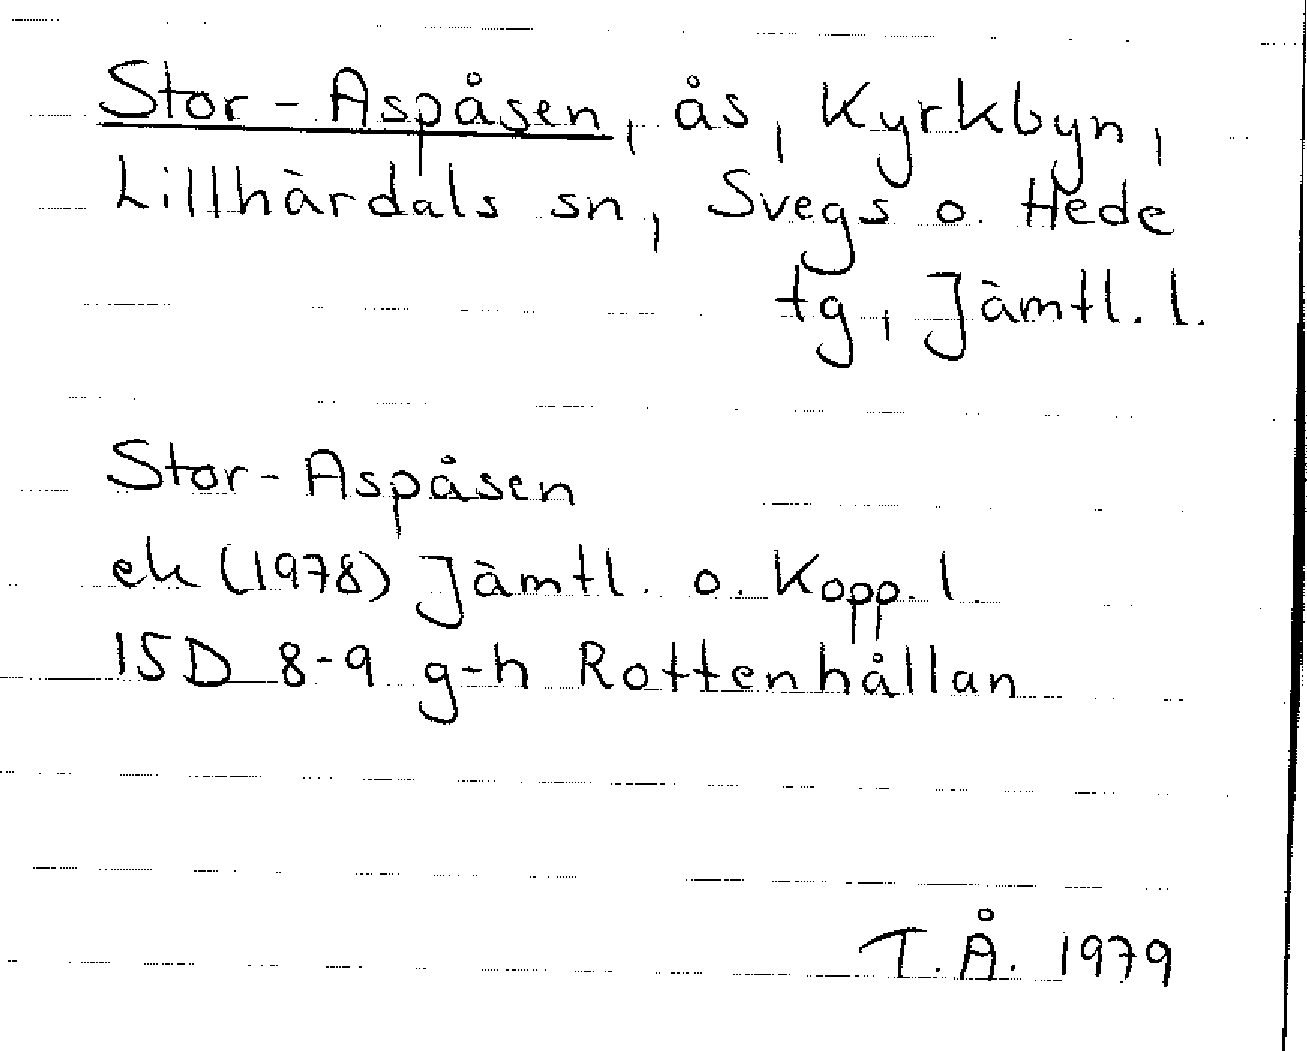 Stor-Aspåsen, ås, Kyrkbyn,
Lillhärdals sn, Svegs o. Hede
tg, Jämtl. l.
Stor-Aspåsen
ek (1978) Jämtl. o. Kopp. l
15D 8-9 g-h Rottenhållan
T.Å. 1979